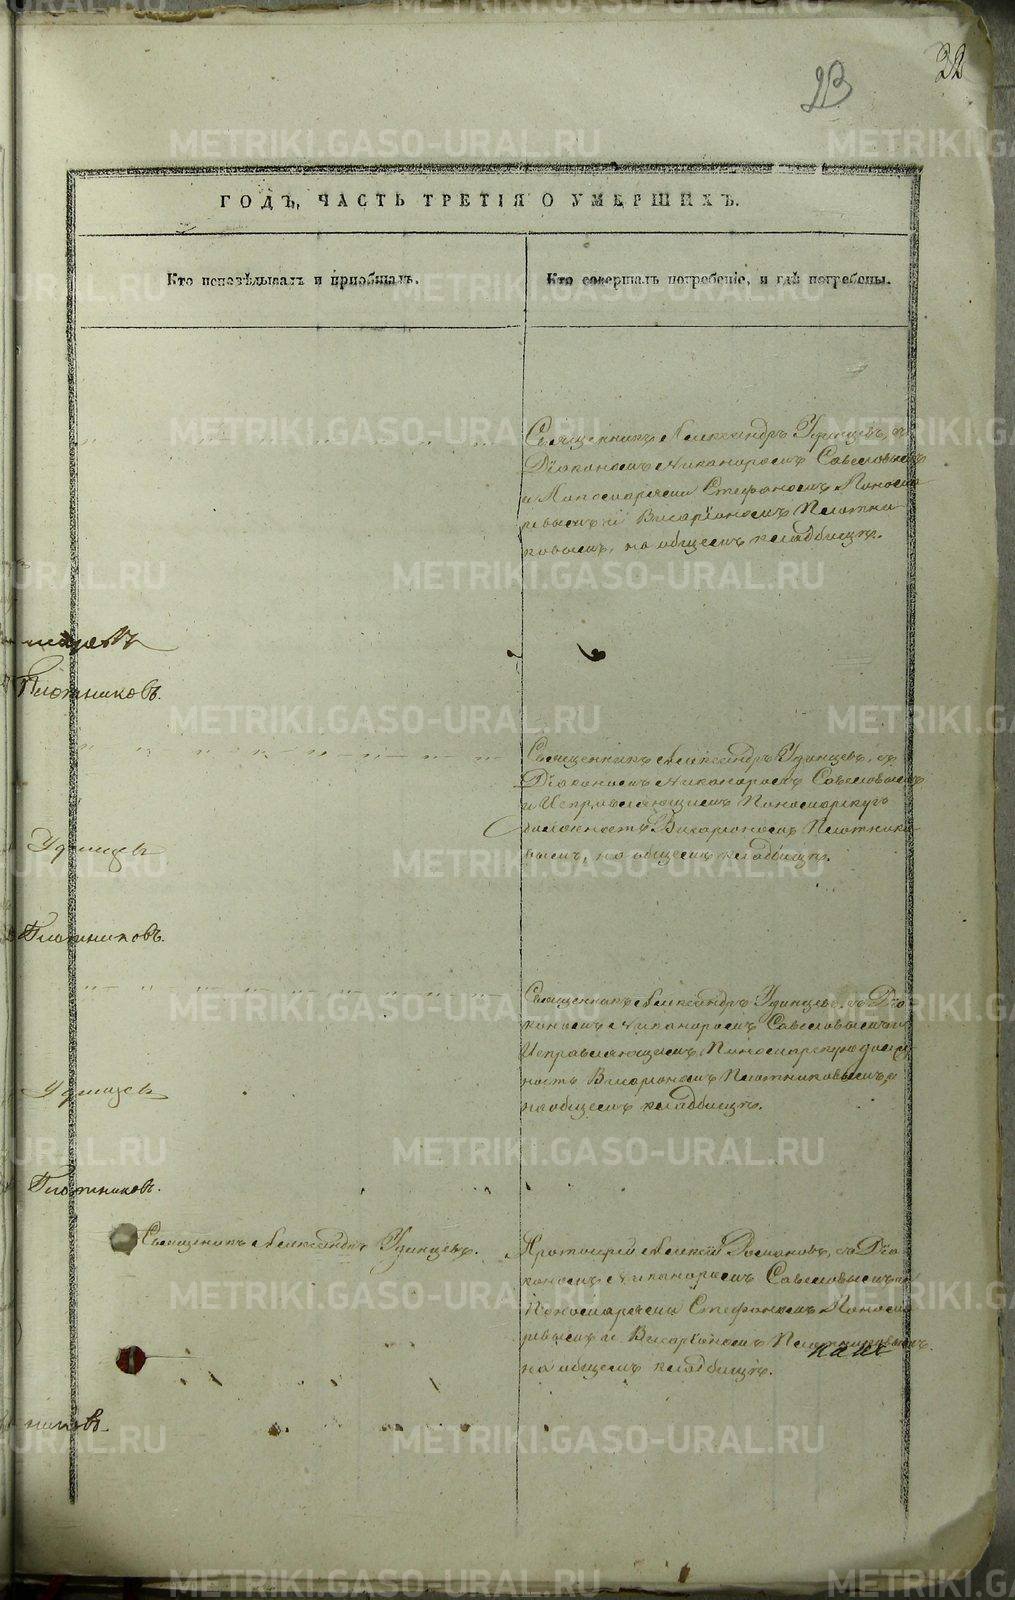 22
23
ГОДЪ, ЧАСТЬ ТРЕТІЯ О УМЕРШИХЪ.
Кто исповѣдывалъ и пріобщалъ.
Кто совершалъ погребеніе, и гдѣ погребены.
Священникъ Александръ Удинцевъ, съ
Діакономъ Никаноромъ Савеловымъ
и Пономарями Стефаномъ Понома
ревымъ и Висаріономъ Плотни
ковымъ, на общемъ кладбищѣ.
Плотниковъ.
Священникъ Александръ Удинцевъ, съ
Діакономъ Никаноромъ Савеловымъ
и Исправляющимъ Пономарскую
должность Висаріономъ Плотнико
вымъ, на общемъ кладбищѣ.
Удинцевъ
Плотниковъ.
Священникъ Александръ Удинцевъ, съ Діа
кономъ Никаноромъ Савеловымъ и
Исправляющимъ Пономарскую долж
ность Висаріономъ Плотниковымъ,
на общемъ кладбищѣ.
Удинцевъ
Плотниковъ.
Священникъ Александръ Удинцевъ.
Протоиерей Алексій Романовъ, съ Діа
кономъ Никаноромъ Савеловымъ и
Пономарями Стефаномъ Понома
ревымъ и Висаріономъ Плотниковымъ.
на общемъ кладбищѣ.
никовъ.
METRIKI.GASO-URAL.RU